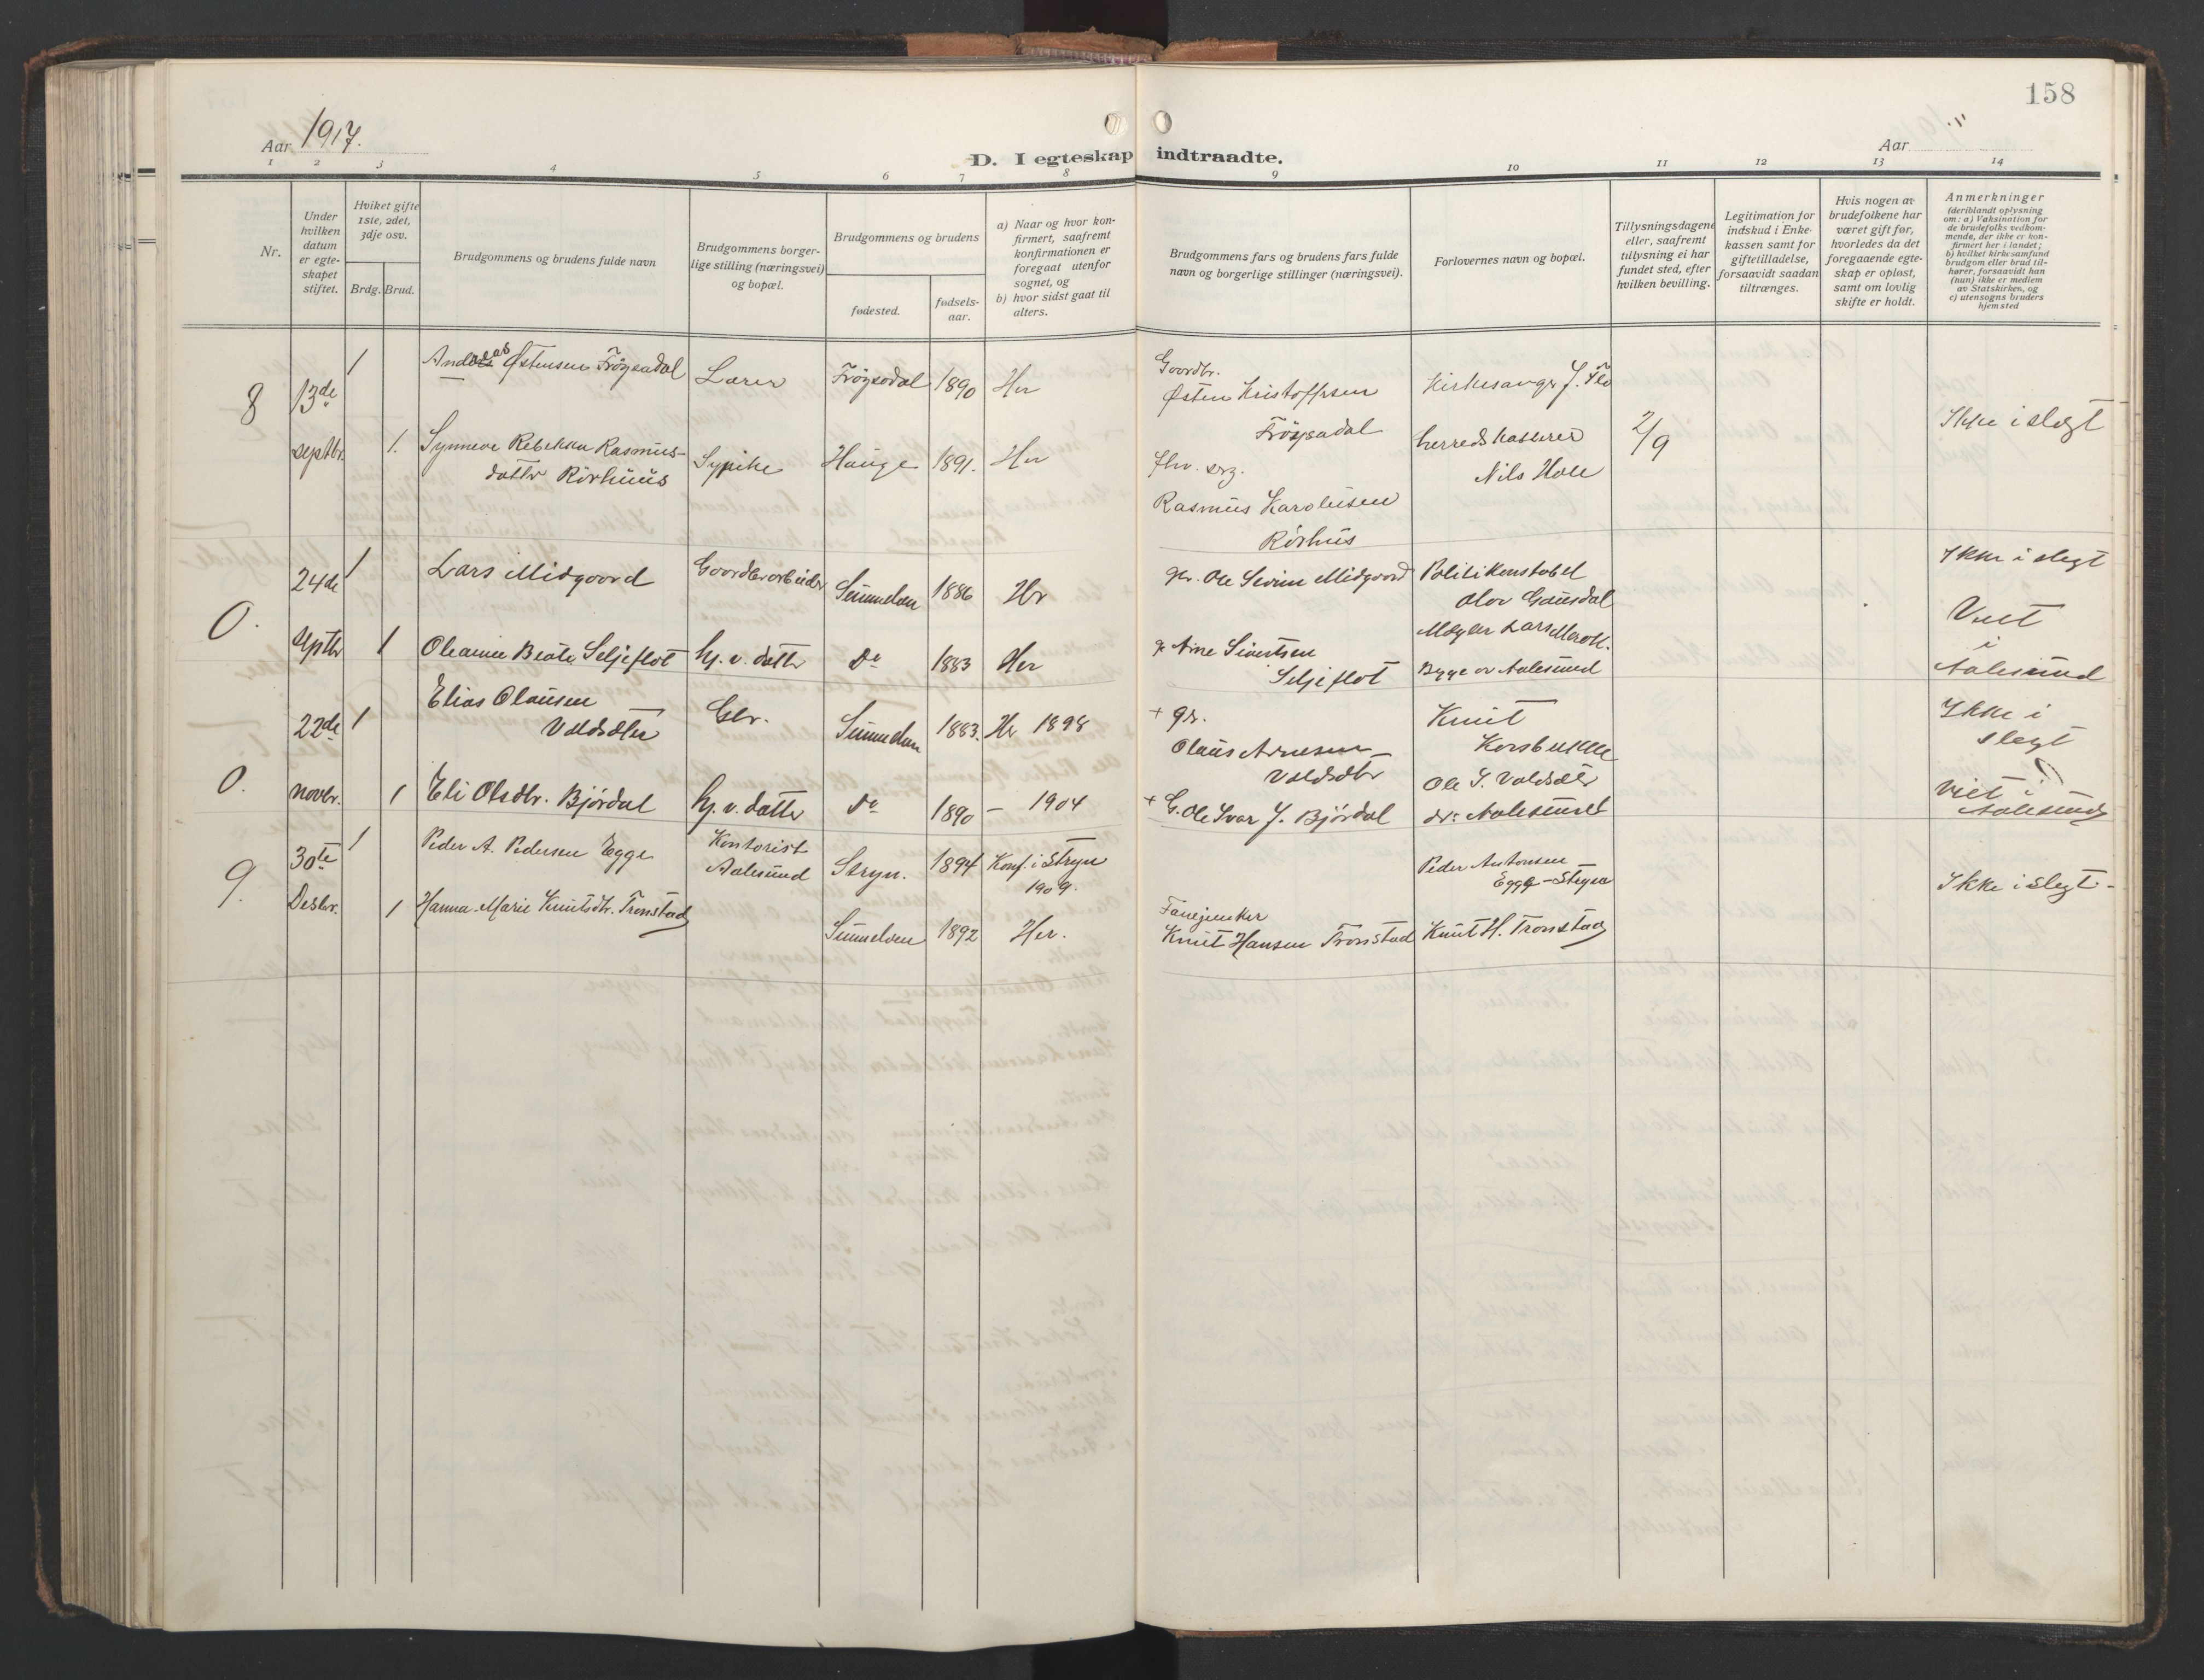 158
Aar 1917.
D. I egteskap indtraadte.
Aar "
1 2 3 4 5 6 7 8 9 10 11 12 13 14
Nr.
Under hvilken datum er egte-skapet stiftet.
Hviket gifte 1ste, 2det, 3dje osv.
Brdg. Brud.
Brudgommens og brudens fulde navn
Brudgommens borger-lige stilling (næringsvei) og bopæl.
Brudgommens og brudens
fødested.
fødsels-aar.
a) Naar og hvor kon-firmert, saafremt konfirmationen er foregaat utenfor sognet, og
b) hvor sidst gaat til alters.
Brudgommens fars og brudens fars fulde navn og borgerlige stillinger (næringsvei).
Forlovernes navn og bopæl.
Tillysningsdagene eller, saafremt tillysning ei har fundet sted, efter hvilken bevilling.
Legitimation for indskud i Enke-kassen samt for giftetilladelse, forsaavidt saadan tiltrænges.
Hvis nogen av brudefolkene har været gift før, hvorledes da det foregaaende egte-skap er opløst, samt om lovlig skifte er holdt.
Anmerkninger
(deriblandt oplysning om: a) Vaksination for de brudefolks vedkom-mende, der ikke er kon-firmert her i landet; b) hvilket kirkesamfund brudgom eller brud til-hører, forsaavidt han (hun) ikke er medlem av Statskirken, og c) utensogns bruders hjemsted
8 13de septbr.
1 Andreas Østensen Frøysadal Lærer Frøysadal 1890 Her
Goardbr. Østen Kristoffersen Frøysadal
Kirkesanger J. Flo
2/9
Ikke i slegt
1. Synneve Rebekka Rasmus-datter Rörhuus Sypike Hauge 1891. Her
fhv. Rasmus Karolusen Rörhus
herredskasserer Nils Hole
0. 24de septbr
1 Lars Midgaard Goardbrarbeider Sunnelven 1886 Her
Ole Sevrin Midgaard
Politikonstabel Olav Gausdal
Ikke i slegt
1 Oleanne Beate Seljeflot hj. v. datter Do 1883 Her
Arne Sivertsen Seljeflot
Mægler Lars Merok.
Begge av Aalesund
Viet i Aalesund
0. 22de novbr.
1 Elias Olausen Voldsdter Gbr. Sunnelven 1883. Her 1898
+ gr. Olaus Arnesen Voldsdtr
Knut Korsbrekke
Ikke i slegt
1 Eli Olsdtr. Björdal hj. v. datter Do 1890 – 1904
+ G. Ole Ivar J. Björdal
Ole S. Voldsdtr
Aalesund
Viet i Aalesund
9. 30te Desbr.
1 Peder A. Pedersen Egge Kontorist Aalesund Stryn. 1894 Konf. i Stryn 1909.
Peder Antonsen Egge – Stryn
Ikke i slegt –
1 Hanna Marie Knutsdtr. Tronstad Sunnelven 1892 Her.
Fanejunker Knut Hansen Tronstad
Knut H. Tronstad